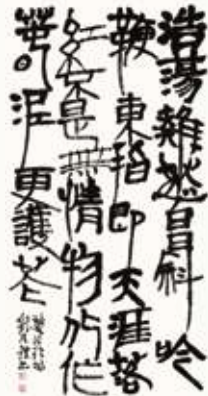 浩蕩離愁白日斜吟
鞭東指即天涯落
紅不是無情物化作
春泥更護花